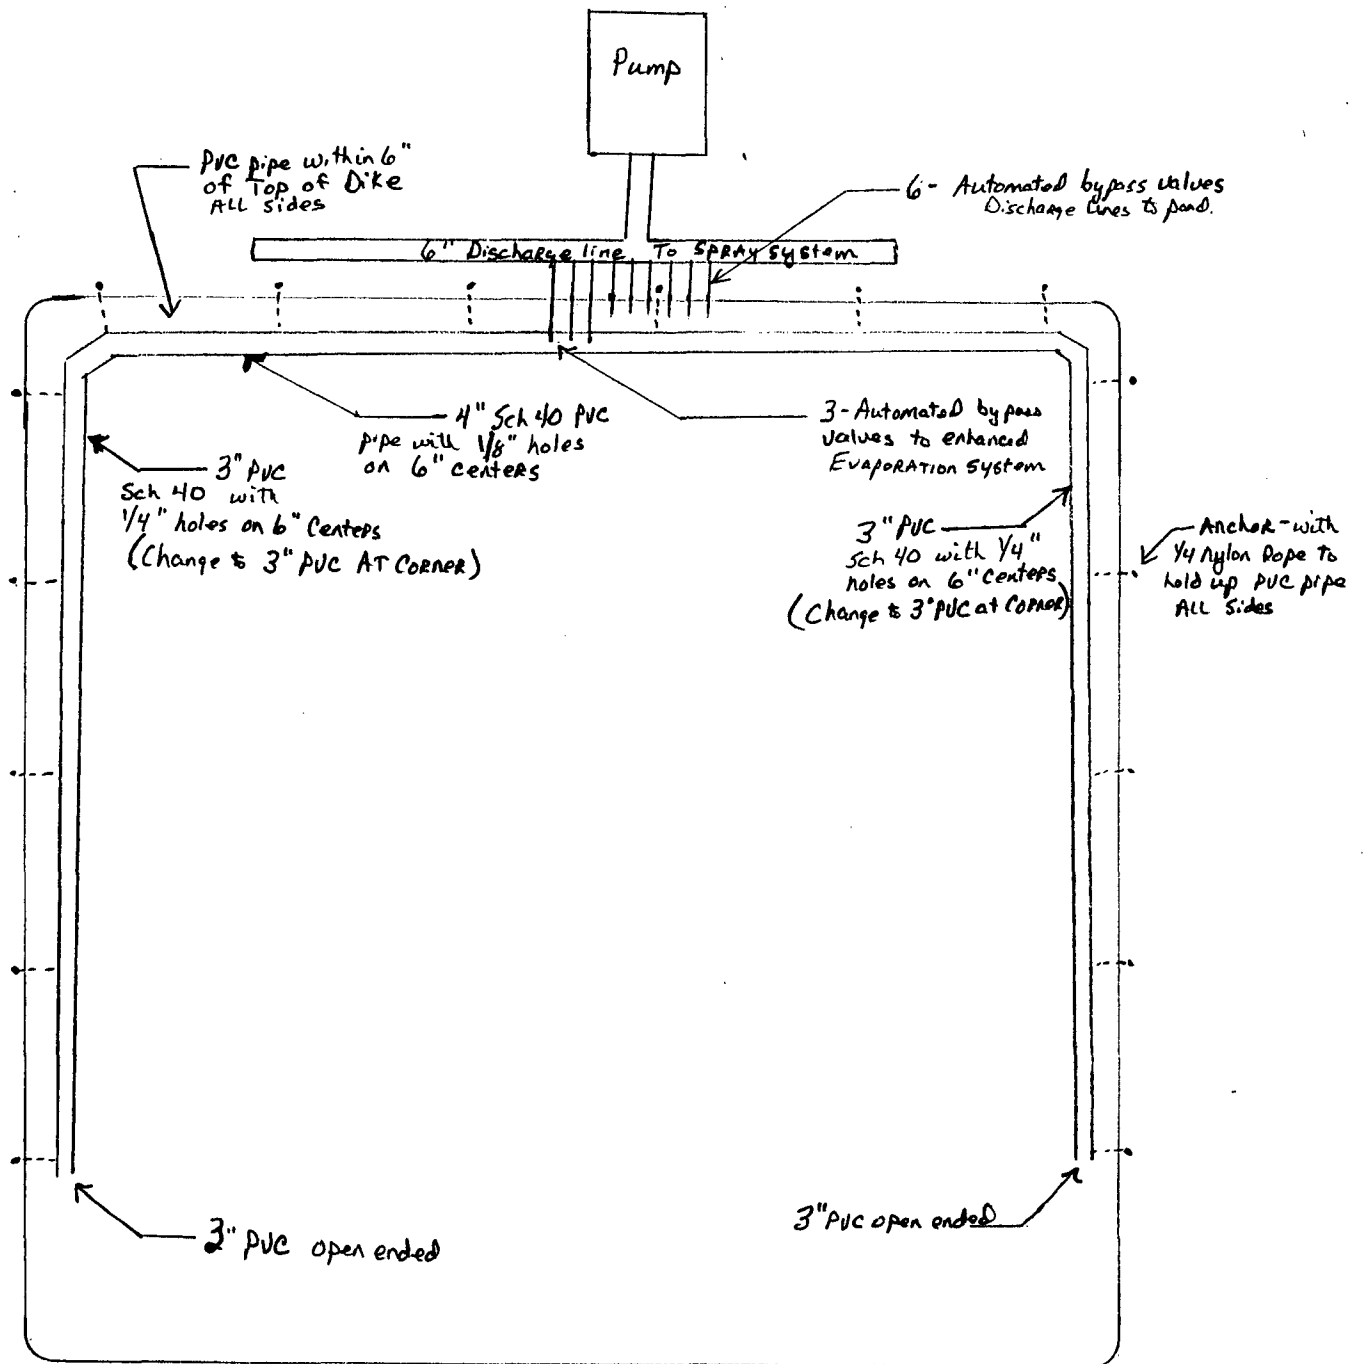 Pump
PVC pipe within 6"
of Top of Dike
ALL sides
6 - Automated bypass valves
Discharge Lines to pond.
6" Discharge line To SPRAY system
4" Sch 40 PVC
pipe with 1/8" holes
on 6" centers
3 - Automated bypass
valves to enhanced
EVAPORATION system
3" PVC
Sch 40 with
1/4" holes on 6" Centers
(Change to 3" PVC AT CORNER)
3" PVC
Sch 40 with 1/4"
holes on 6" Centers
(Change to 3" PVC at CORNER)
Anchor - with
1/4 Nylon Rope to
hold up PVC pipe
ALL Sides
3" PVC open ended
3" PVC open ended